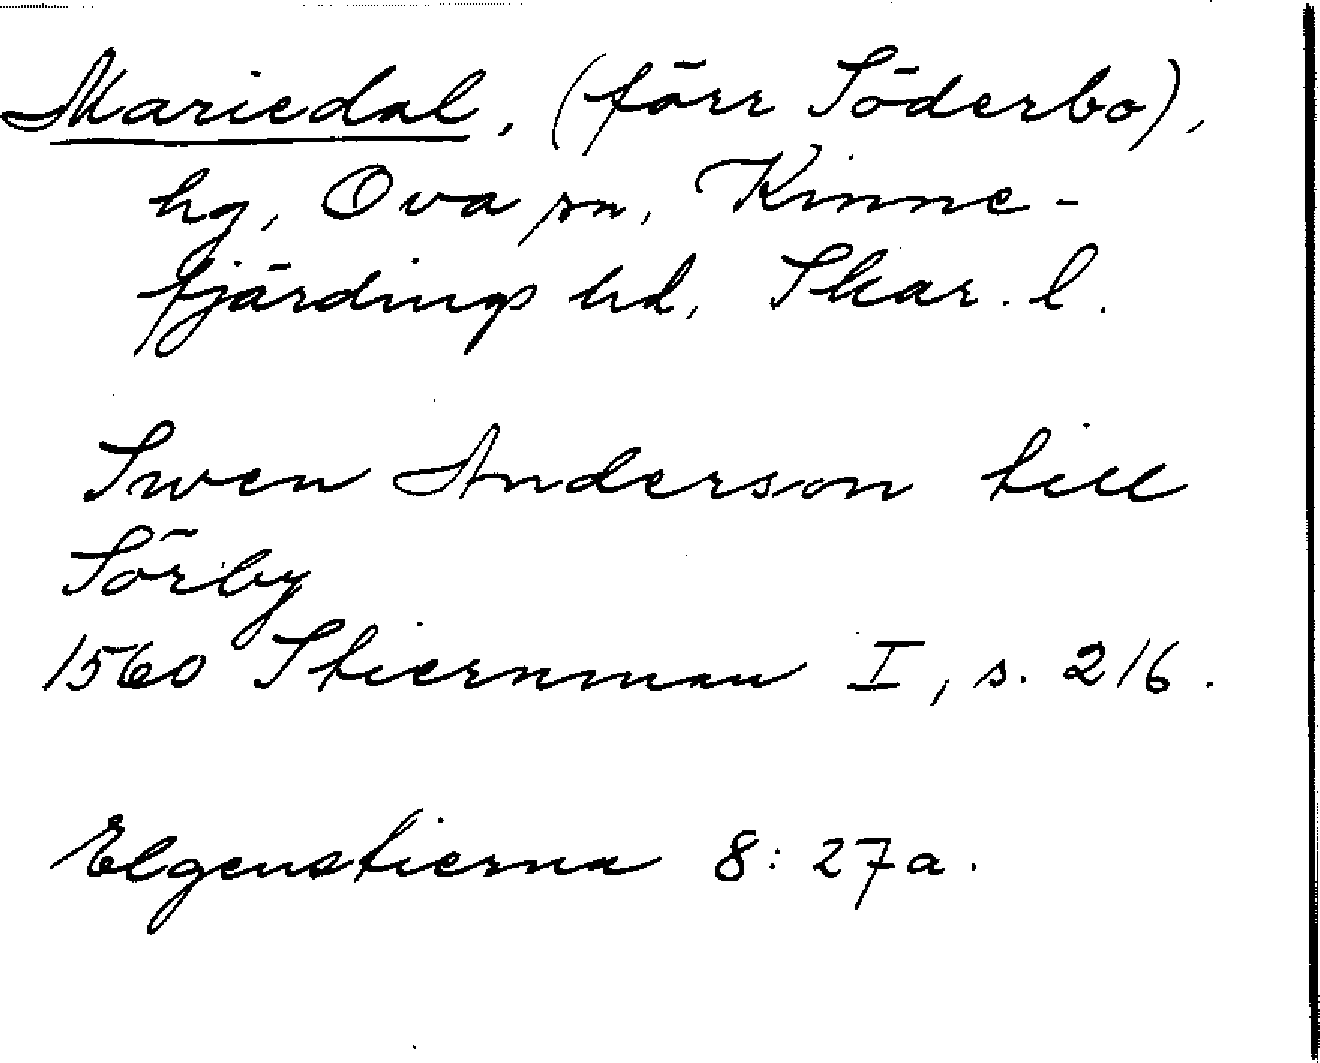 Mariedal, (förr Söderbo),
hg, Ova sn, Kinne-
fjärdings hd, Skar. l.
Swen Anderson till
Sörby
1560 Stiernman I, s. 216.
Elgenstierna 8: 27a.